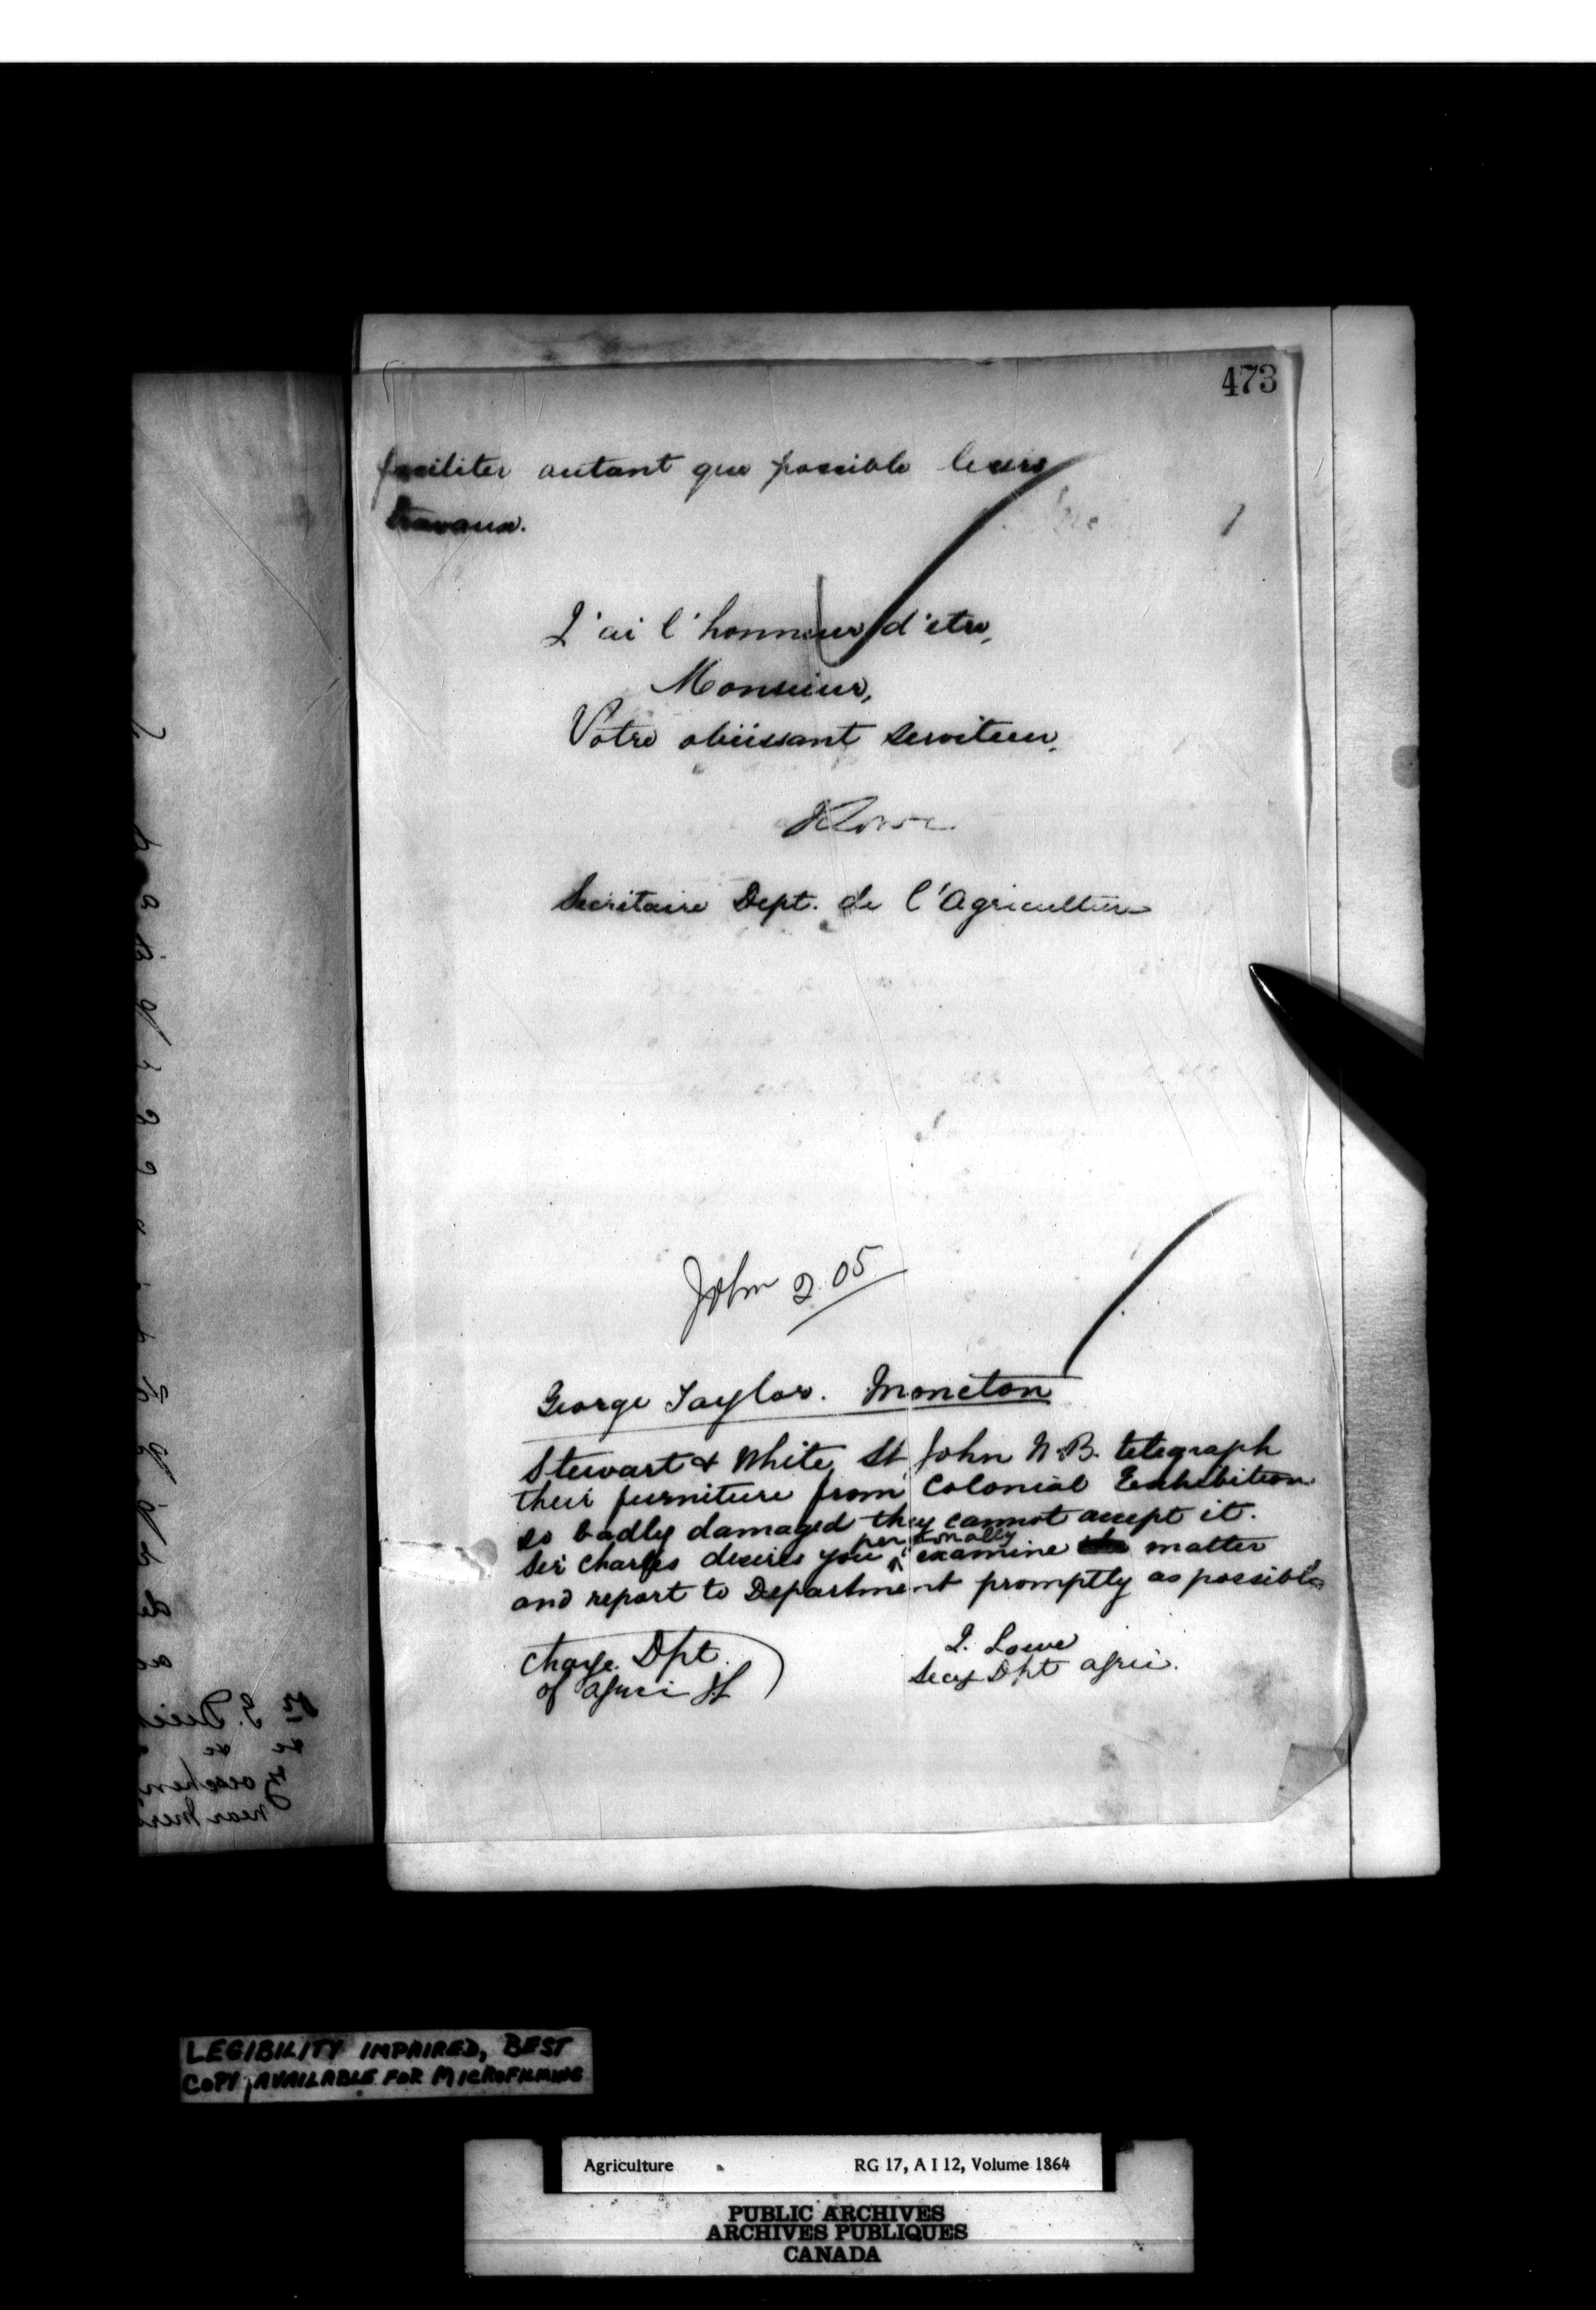 473
faciliter autant que possible leurs
travaux.
J'ai l'honneur d'etre,
Monsieur,
Votre obéissant serviteur,
J Lowe
Secrétaire Dept. de l'Agriculture
John 2 05
George Taylor. Moncton
Stewart & White, St John N.B. telegraph
their furniture from Colonial Exhibition
so badly damaged they cannot accept it.
Sir Charles desires you personally examine matter
and report to Department promptly as possible
J. Lowe
Secy Dpt Agri.
Charge Dpt.
of Agri JL
LEGIBILITY IMPAIRED, BEST
COPY AVAILABLE FOR MICROFILMING
Agriculture RG 17, A I 12, Volume 1864
PUBLIC ARCHIVES
ARCHIVES PUBLIQUES
CANADA